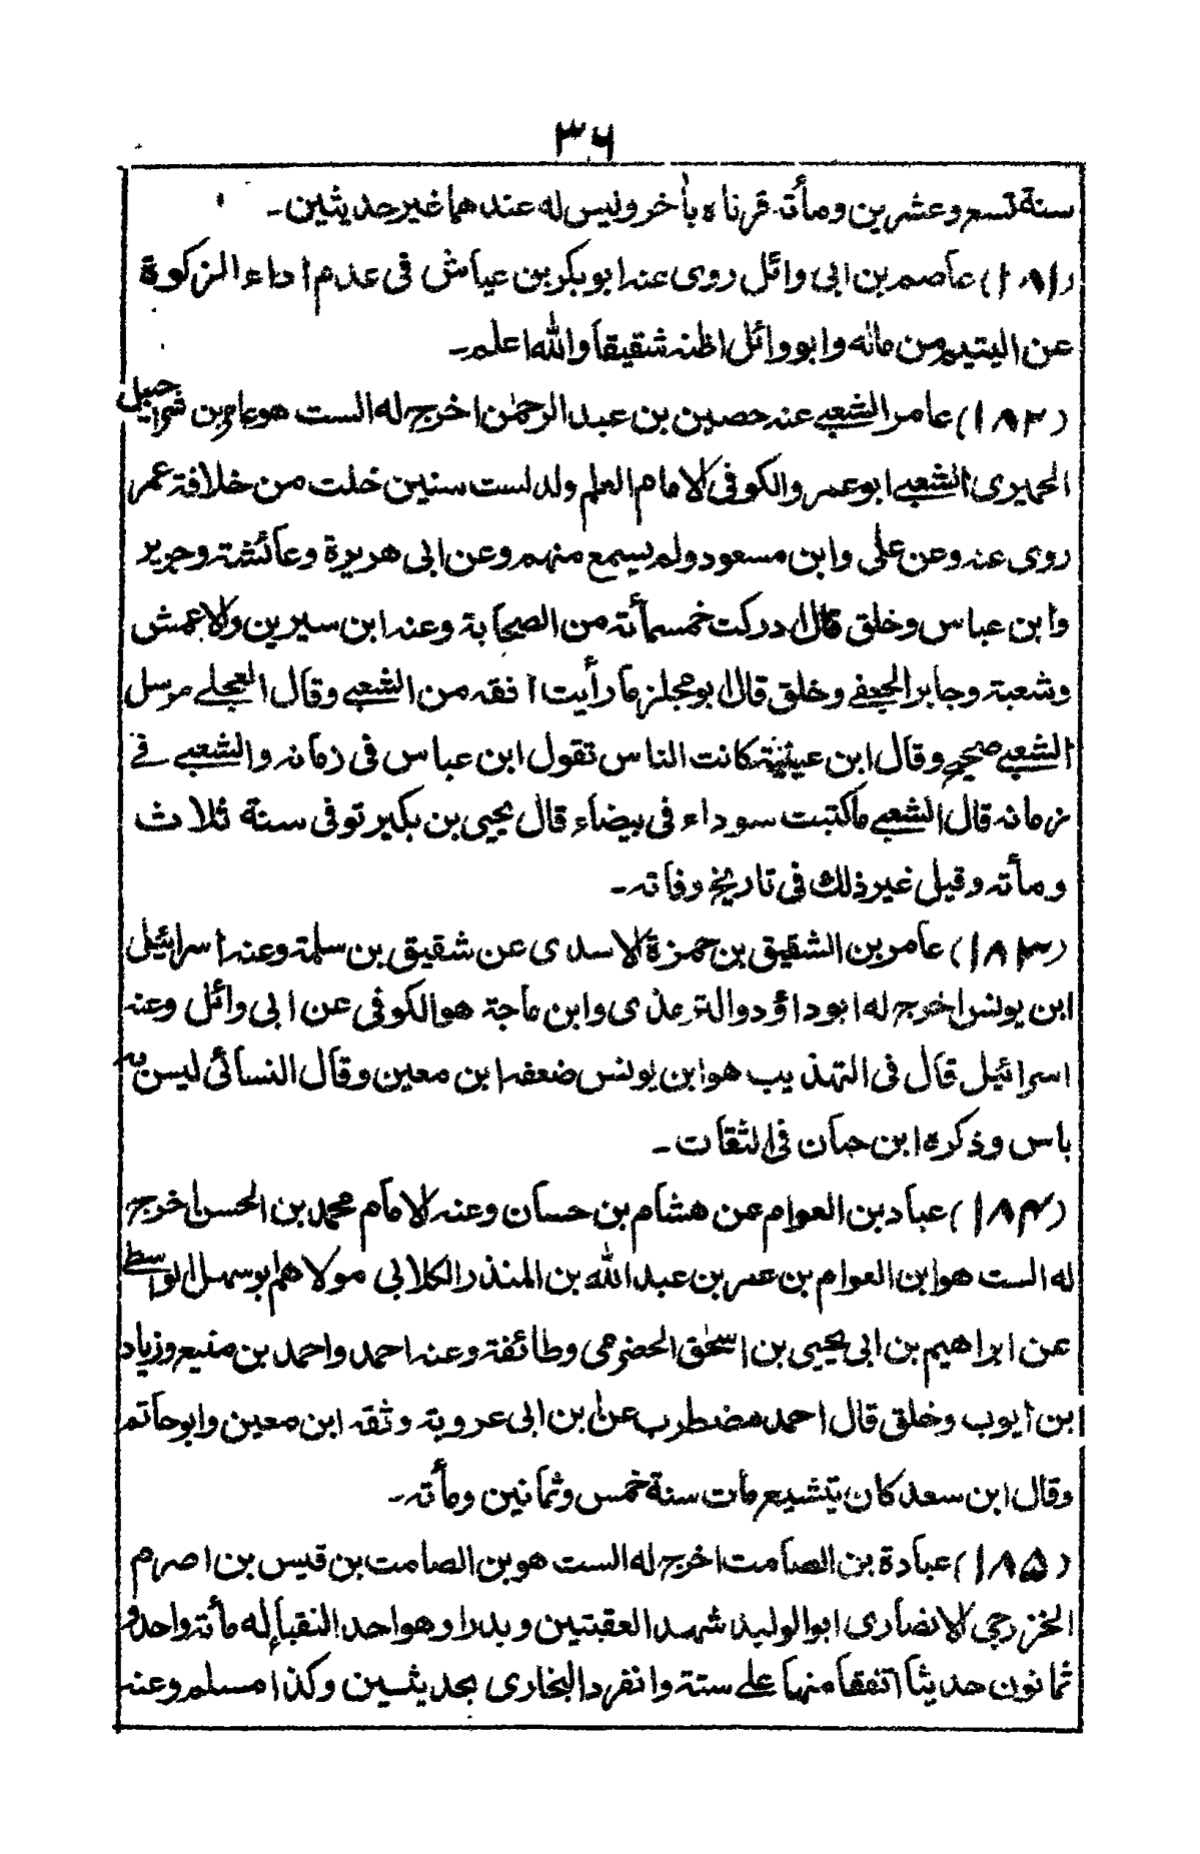 ٣٦
سنة تسع وعشرين ومأته قرناه بأخر وليس له عندهما غير حديثين۔
(١٨١) عاصم بن ابى وائل روى عنه ابو بكر بن عياش فى عدم اداء الزكوة
عن اليتيم من ماله وابو وائل اظنه شقيقا والله اعلم۔
(١٨٢) عامر الشعبے عنه حصين بن عبد الرحمٰن اخرج له الست هو عامر بن شراحيل
الحميرى الشعبے ابو عمرو الكوفى الامام العلم ولد لست سنين خلت من خلافة عمر
روى عنه وعن على وابن مسعود ولم يسمع منهم وعن ابى هريرة وعائشة وجرير
وابن عباس وخلق قال ادركت خمسمأئة من الصحابة وعنه ابن سيرين والاعمش
وشعبة وجابر الجعفے وخلق قال ابو مجلز ما رأيت افقه من الشعبے وقال العجلے مرسل
الشعبے صحيح وقال ابن عيينة كانت الناس تقول ابن عباس فى زمانه والشعبے فے
زمانه قال الشعبے ما كتبت سوداء فى بيضاء قال يحيى بن بكير توفى سنة ثلاث
ومأته وقيل غير ذلك فى تاريخ وفاته۔
(١٨٣) عامر بن الشقيق بن حمزة الاسدى عن شقيق بن سلمة وعنه اسرائيل
ابن يونس اخرج له ابو داؤد والترمذى وابن ماجة هو الكوفى عن ابى وائل وعنه
اسرائيل قال فى التهذيب هو ابن يونس ضعفه ابن معين وقال النسائى ليس به
باس وذكره ابن حبان فى الثقات۔
(١٨٤) عباد بن العوام عن هشام بن حسان وعنه الامام محمد بن الحسن اخرج
له الست هو ابن العوام بن عمر بن عبد الله بن المنذر الكلابى مولاهم ابو سهل الواسطے
عن ابراهيم بن ابى يحيى بن اسحٰق الحضرمى وطائفة وعنه احمد واحمد بن منيع وزياد
بن ايوب وخلق قال احمد مضطرب عن ابن ابى عروبة وثقه ابن معين وابو حاتم
وقال ابن سعد كان يتشيع مات سنة خمس وثمانين ومأته۔
(١٨٥) عبادة بن الصامت اخرج له الست هو بن الصامت بن قيس بن اصرم
الخزرجى الانصارى ابو الوليد شهد العقبتين وبدرا وهو احد النقباء له مأته واحد و
ثمانون حديثا اتفقا منها علے ستة وانفرد البخارى بحديثين وكذا مسلم وعنه